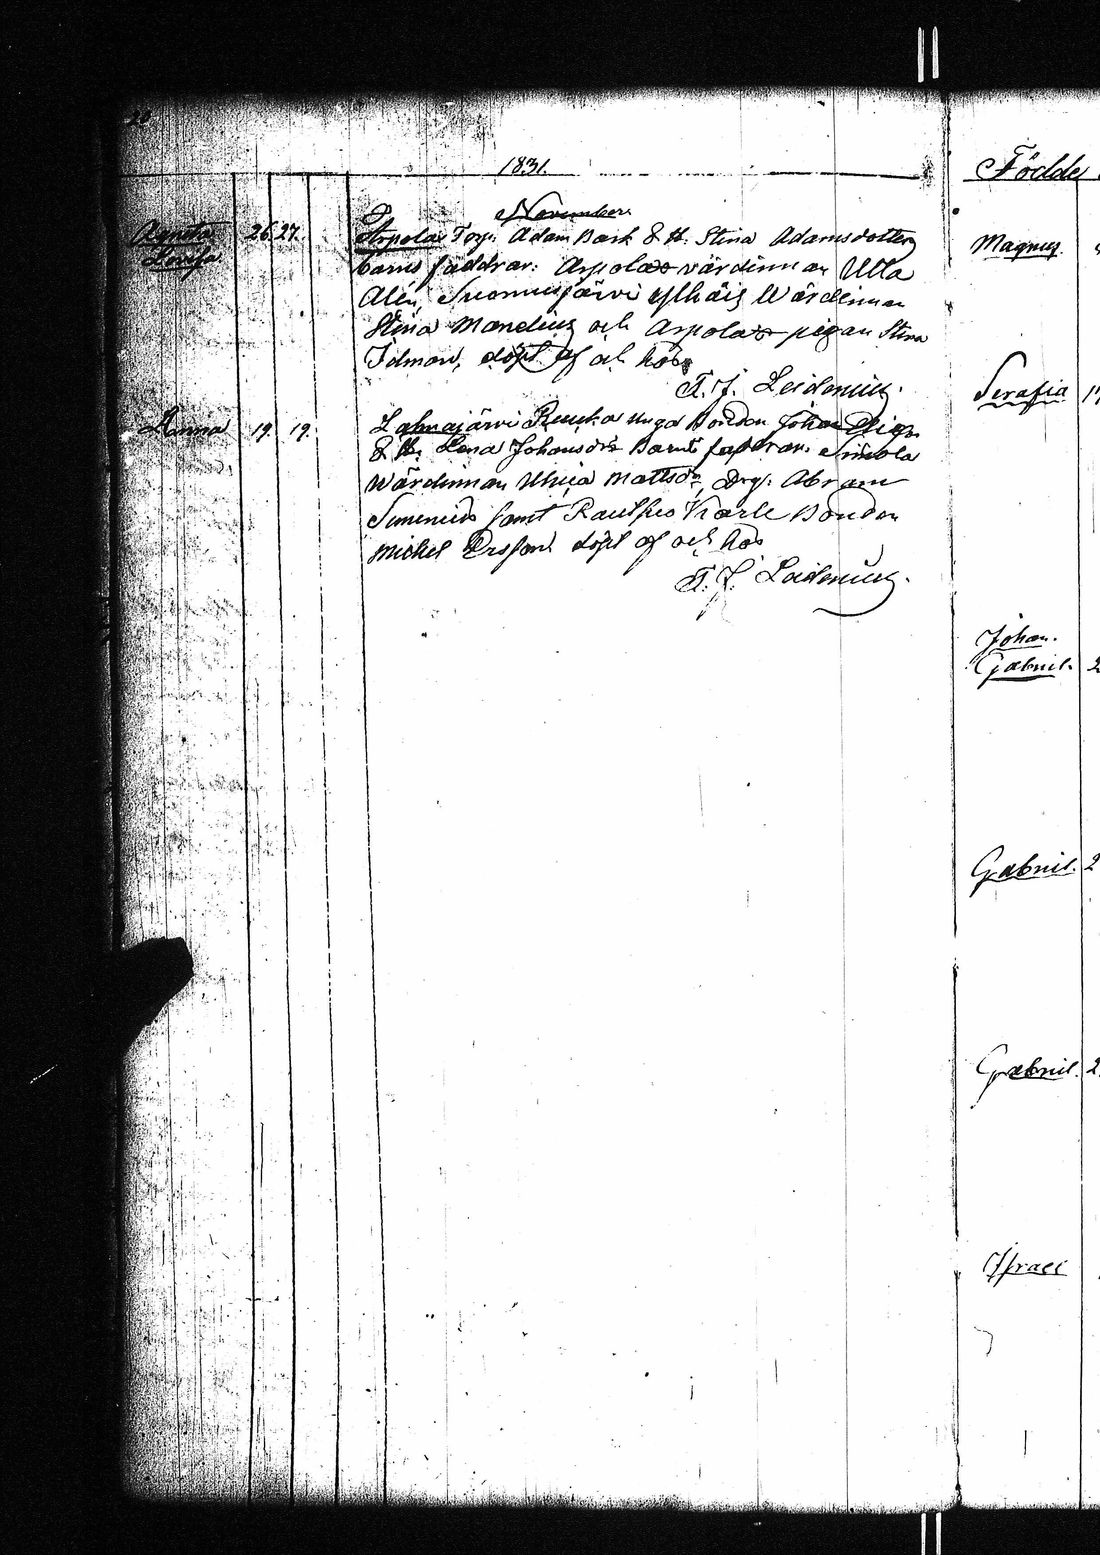 28
1831.
November.
Agneta Lovisa 26. 27. Arpola Torp. Adam Bark & H. Stina Adamsdotter
barns faddrar: Arpolas värdinnan Ulla
Alén, Suomusjärvi Wärdinnan
Stina Mandelin och Arpolas pigan Stina
Idman, döpt af och hos
T. J. Leidenius.
Anna 19. 19. Lahnajärvi unga Bonden Johan
& H. Lena Johansdr Barnets faddrar:
Wärdinnan Ulrica Mattsdr, Drg. Abram
Simenius samt Karle Bonden
Michel Ersson döpt af och hos
T. J. Leidenius.
Födde
Magnus.
Serafia 17
Johan.
Gabriel. 2
Gabriel. 2
Gabriel. 2
Israel